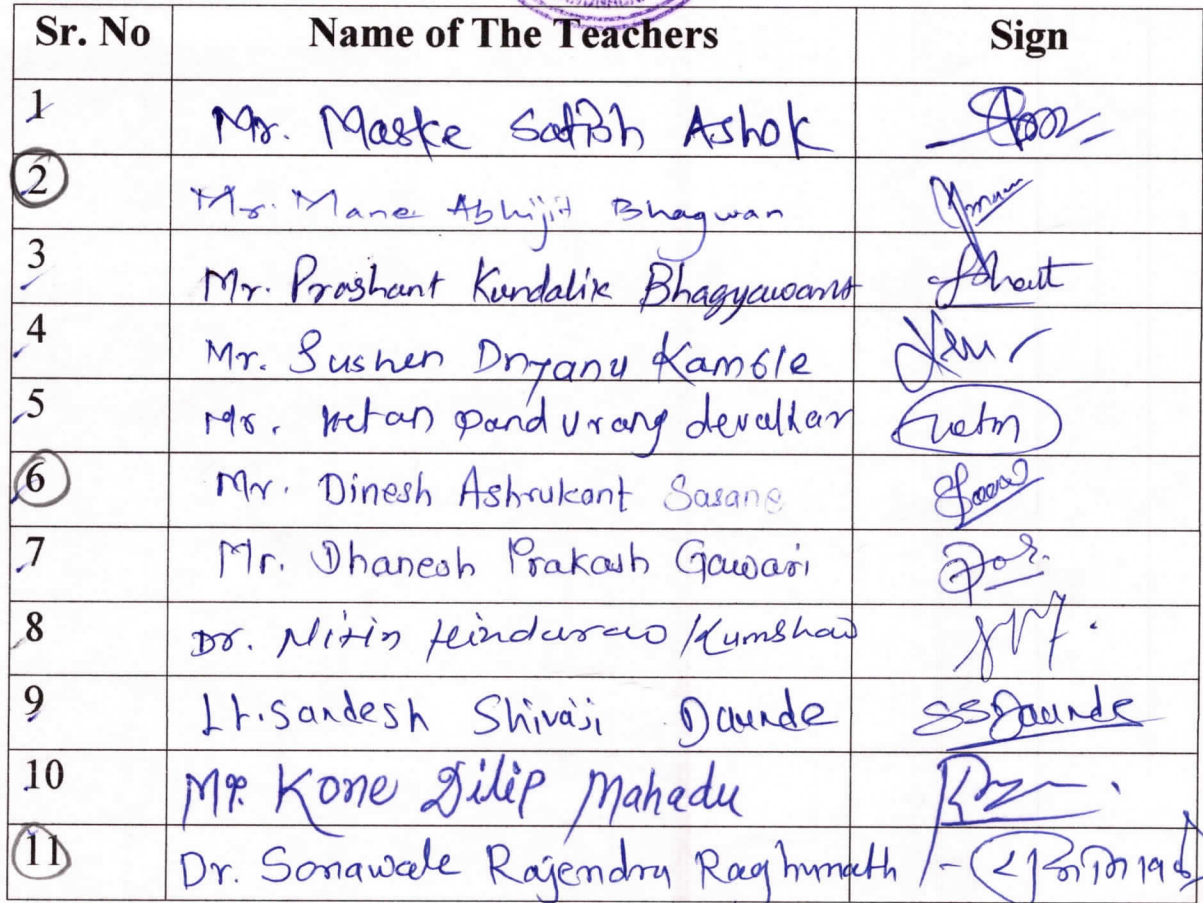 Sr. No Name of The Teachers Sign
1 Mr. Maske Satish Ashok
2 Mr. Mane Abhijit Bhagwan
3 Mr. Prashant Kundalik Bhagyawant
4 Mr. Sushen Dnyanu Kamble
5 Mr. Ketan Pandurang devalkar
6 Mr. Dinesh Ashrukant Sasane
7 Mr. Dhanesh Prakash Gawari
8 Dr. Nitin Hindurao Kumbhar
9 Lt. Sandesh Shivaji Daunde SSDaunde
10 Mr. Kone Dilip Mahadu
11 Dr. Sonawale Rajendra Raghunath